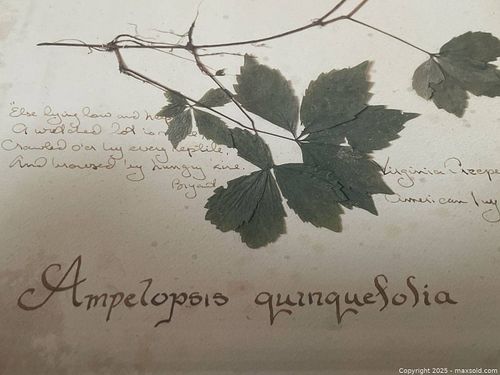 "Else lying low and
A wretched lot
Crawled o'er by every reptile,
And browsed by hungry kine.
Bryant
Virginia Creepe
American Ivy
Ampelopsis quinquefolia
Copyright 2025 - maxsold.com